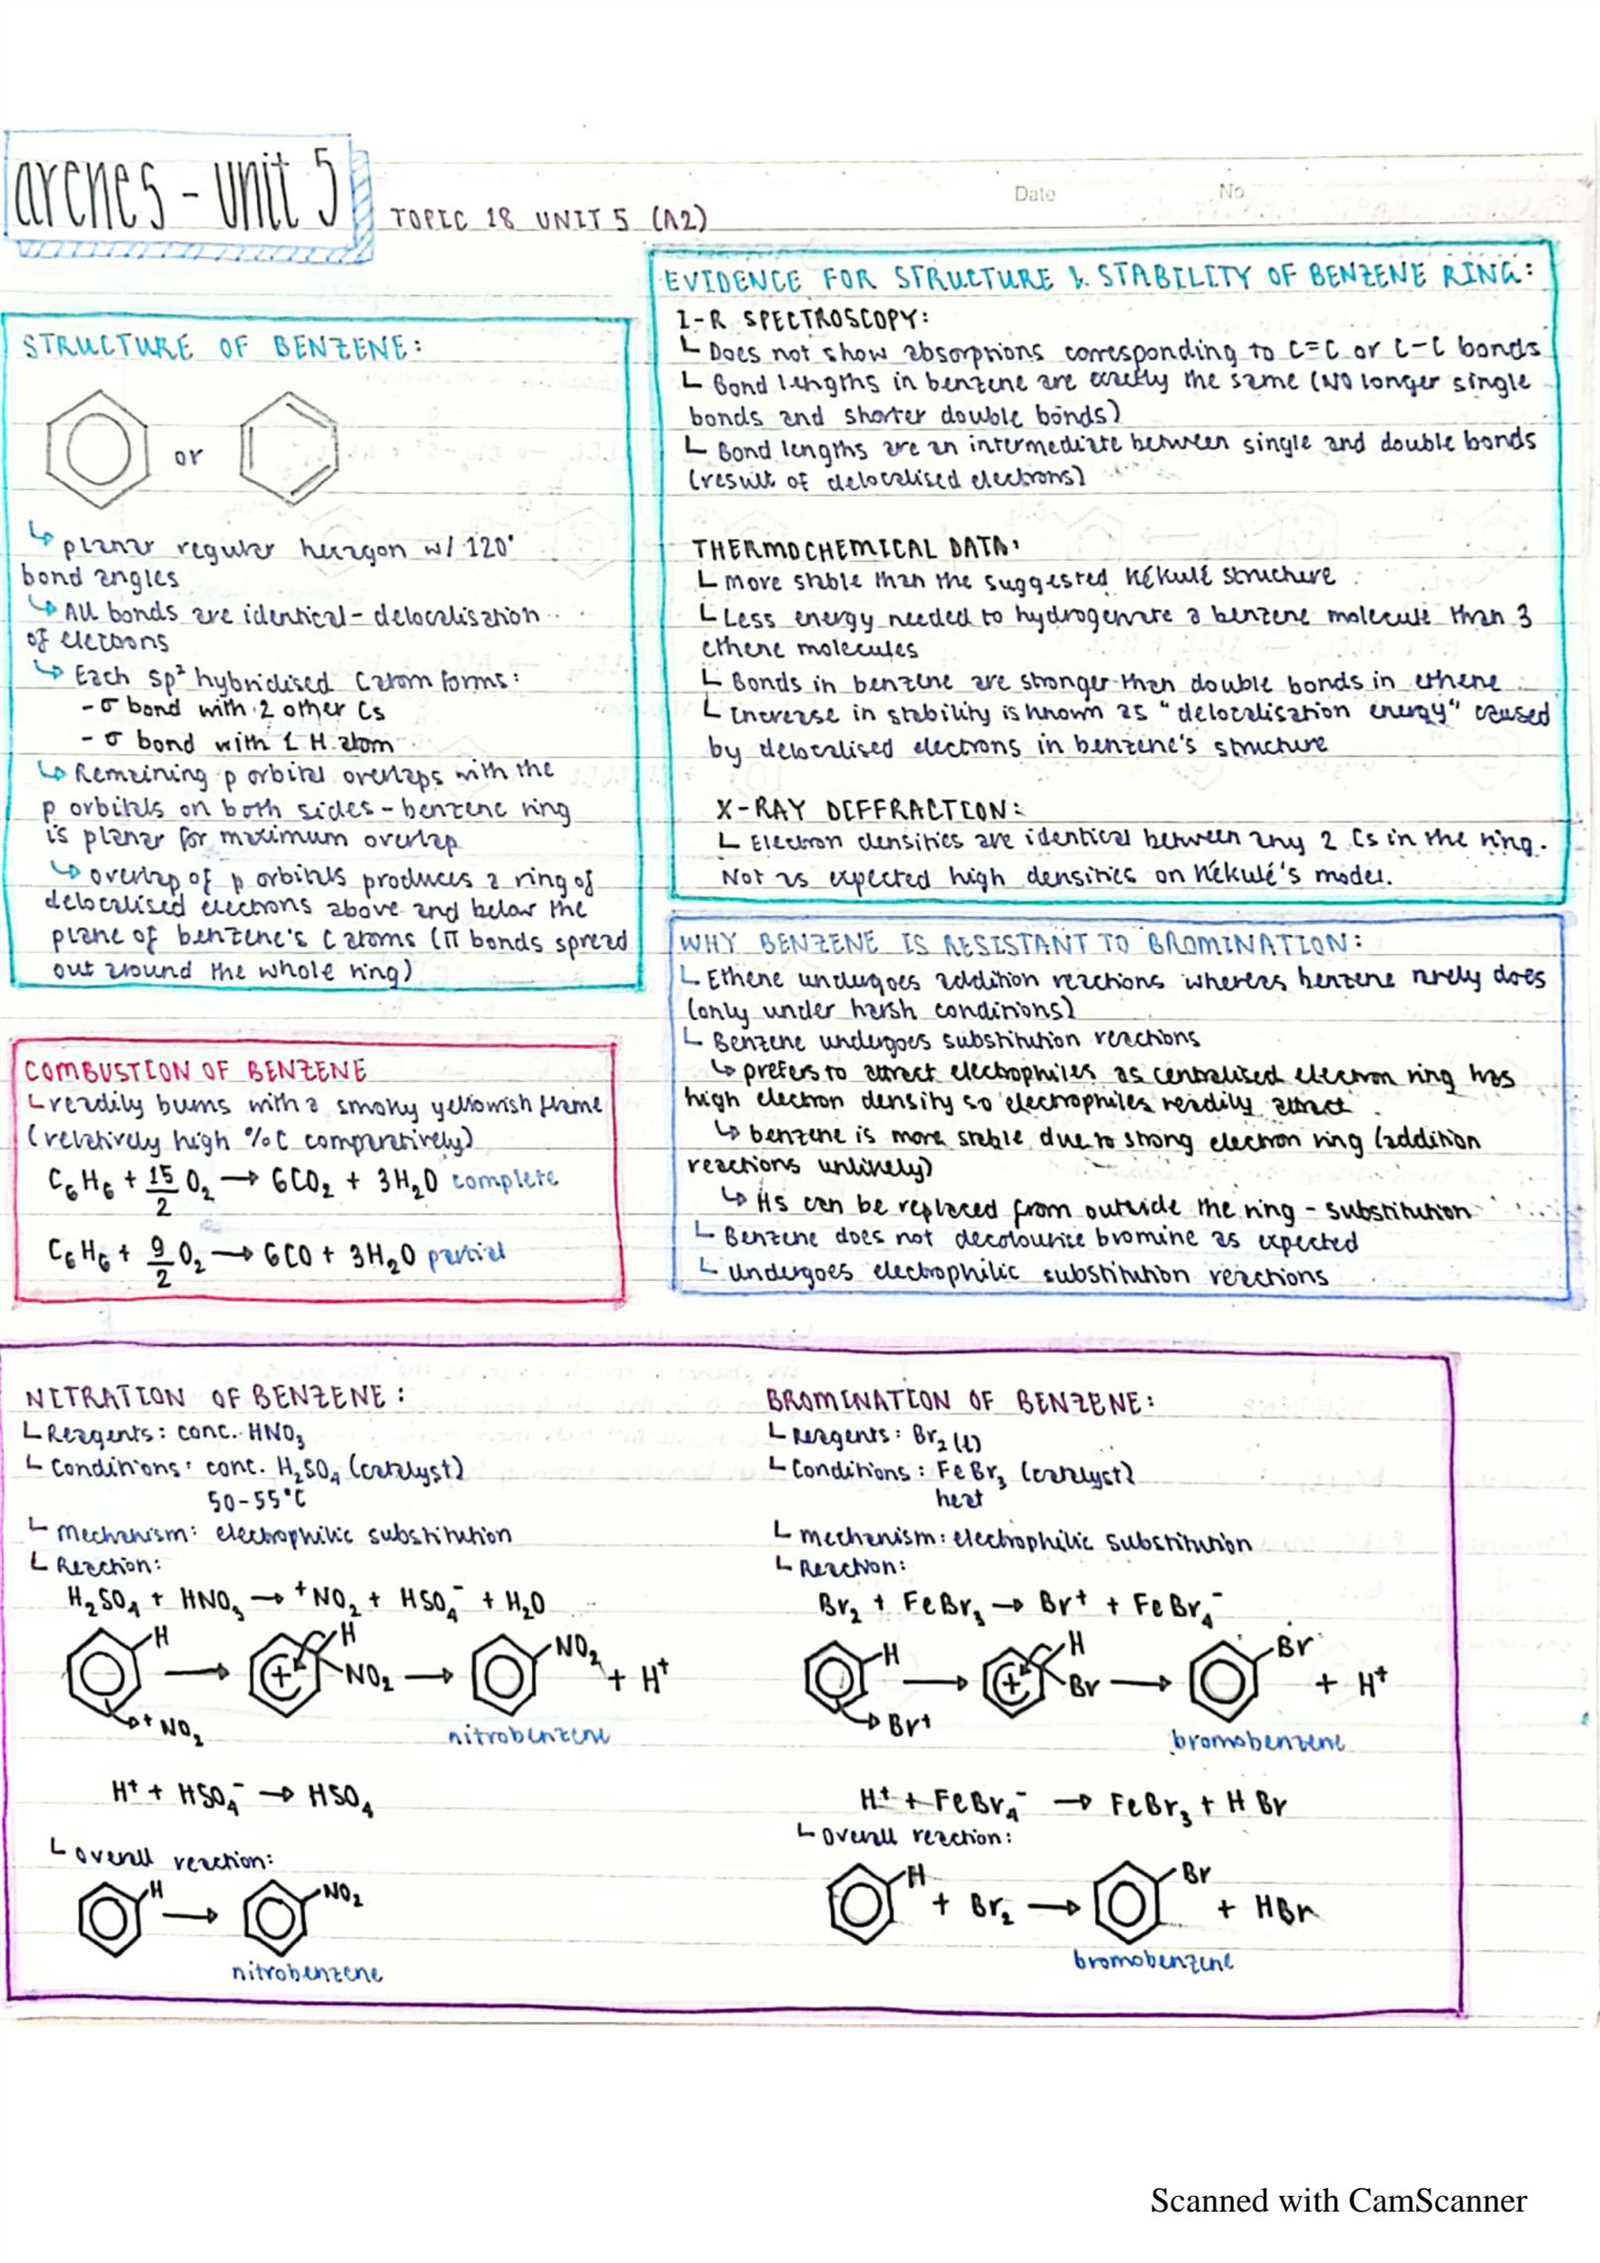 arenes - unit 5
TOPIC 18 UNIT 5 (A2)
Date
No
STRUCTURE OF BENZENE:
or
↳ planar regular hexagon w/ 120°
bond angles
↳ All bonds are identical - delocalisation
of electrons
↳ Each sp² hybridised C atom forms:
- σ bond with 2 other Cs
- σ bond with 1 H atom
↳ Remaining p orbital overlaps with the
p orbitals on both sides - benzene ring
is planar for maximum overlap
↳ overlap of p orbitals produces a ring of
delocalised electrons above and below the
plane of benzene's C atoms (π bonds spread
out around the whole ring)
EVIDENCE FOR STRUCTURE & STABILITY OF BENZENE RING:
I-R SPECTROSCOPY:
↳ Does not show absorptions corresponding to C=C or C-C bonds
↳ Bond lengths in benzene are exactly the same (NO longer single
bonds and shorter double bonds)
↳ Bond lengths are an intermediate between single and double bonds
(result of delocalised electrons)
THERMOCHEMICAL DATA:
↳ more stable than the suggested Kékulé structure
↳ Less energy needed to hydrogenate a benzene molecule than 3
ethene molecules
↳ Bonds in benzene are stronger than double bonds in ethene
↳ increase in stability is known as "delocalisation energy" caused
by delocalised electrons in benzene's structure
X-RAY DIFFRACTION:
↳ Electron densities are identical between any 2 Cs in the ring.
Not as expected high densities on Kékulé's model.
COMBUSTION OF BENZENE
↳ readily burns with a smoky yellowish flame
(relatively high %C comparatively)
C₆H₆ + 15/2 O₂ → 6CO₂ + 3H₂O complete
C₆H₆ + 9/2 O₂ → 6CO + 3H₂O partial
WHY BENZENE IS RESISTANT TO BROMINATION:
↳ Ethene undergoes addition reactions whereas benzene rarely does
(only under harsh conditions)
↳ Benzene undergoes substitution reactions
↳ prefers to attract electrophiles as centralised electron ring has
high electron density so electrophiles readily attract
↳ benzene is more stable due to strong electron ring (addition
reactions unlikely)
↳ Hs can be replaced from outside the ring - substitution
↳ Benzene does not decolourise bromine as expected
↳ undergoes electrophilic substitution reactions
NITRATION OF BENZENE:
↳ Reagents: conc. HNO₃
↳ Conditions: conc. H₂SO₄ (catalyst)
50-55°C
↳ Mechanism: electrophilic substitution
↳ Reaction:
H₂SO₄ + HNO₃ → ⁺NO₂ + HSO₄⁻ + H₂O
H → + H NO₂ → NO₂ + H⁺
⁺NO₂
nitrobenzene
H⁺ + HSO₄⁻ → HSO₄
↳ Overall reaction:
H → NO₂
nitrobenzene
BROMINATION OF BENZENE:
↳ Reagents: Br₂ (l)
↳ Conditions: FeBr₃ (catalyst)
heat
↳ mechanism: electrophilic substitution
↳ Reaction:
Br₂ + FeBr₃ → Br⁺ + FeBr₄⁻
H → + H Br → Br + H⁺
Br⁺
bromobenzene
H⁺ + FeBr₄⁻ → FeBr₃ + HBr
↳ Overall reaction:
H + Br₂ → Br + HBr
bromobenzene
Scanned with CamScanner